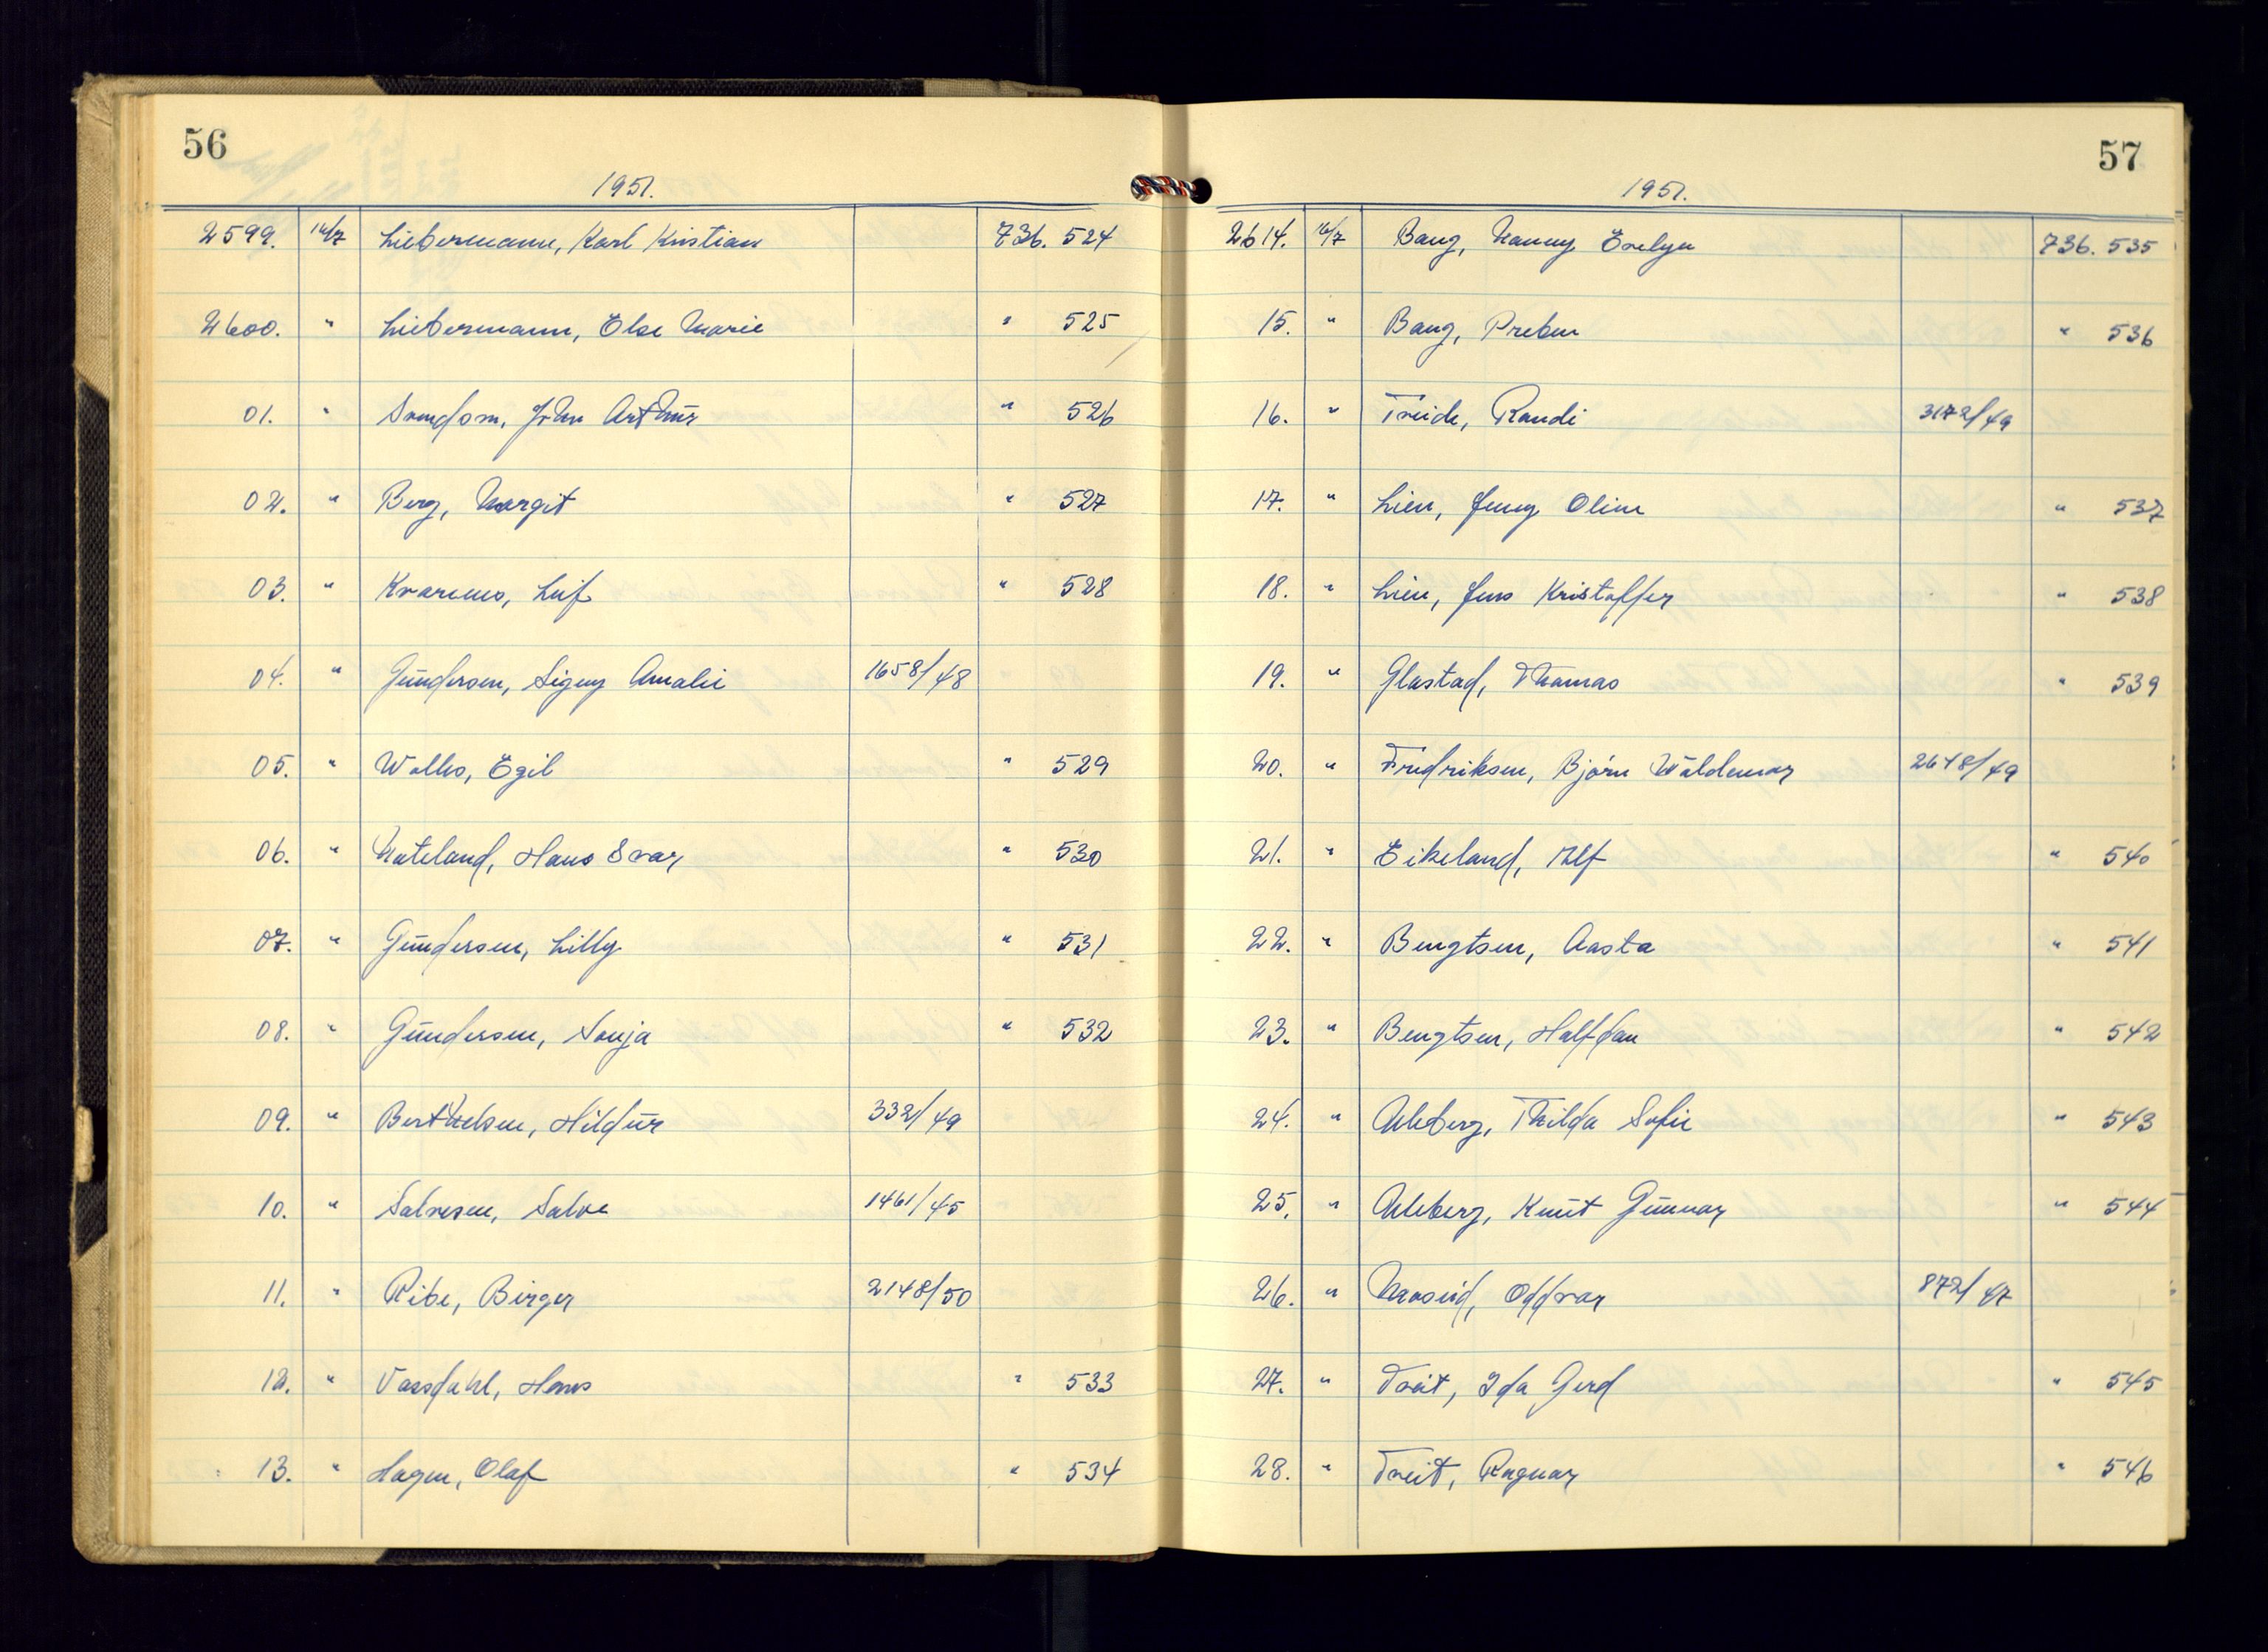 56
1951.
2599. 16/7 Liebermann, Karl Kristian 736. 524
2600. " Liebermann, Else Marie " 525
01. " Svendsen, John Arthur " 526
02. " Berg, Margit " 527
03. " Leif " 528
04. " Gundersen, Signy Amalie 1658/48
05. " Egil " 529
06. " Hans Svar " 530
07. " Gundersen, Lilly " 531
08. " Gundersen, Sonja " 532
09. " Berthelsen, Hildur 332/49
10. " Salvesen, Salve 1461/45
11. " Ribe, Birger 2148/50
12. " Vassdahl, Hans " 533
13. " Hagen, Olaf " 534
57
1951.
2614. 16/7 Bang, Nanny Evelyn 736. 535
15. " Bang, Preben " 536
16. " Treide, Randi 3172/49
17. " Lien, Jenny Oline " 537
18. " Lien, Jens Kristoffer " 538
19. " Glastad, Thomas " 539
20. " Fredriksen, Bjørn Waldemar 2648/49
21. " Eikeland, Alf " 540
22. " Bengtsen, Aasta " 541
23. " Bengtsen, Halfdan " 542
24. " Thilda Sofie " 543
25. " Knut Gunnar " 544
26. " Oddvar 872/47
27. " Treit, Ida Gerd " 545
28. " Treit, Ragnar " 546